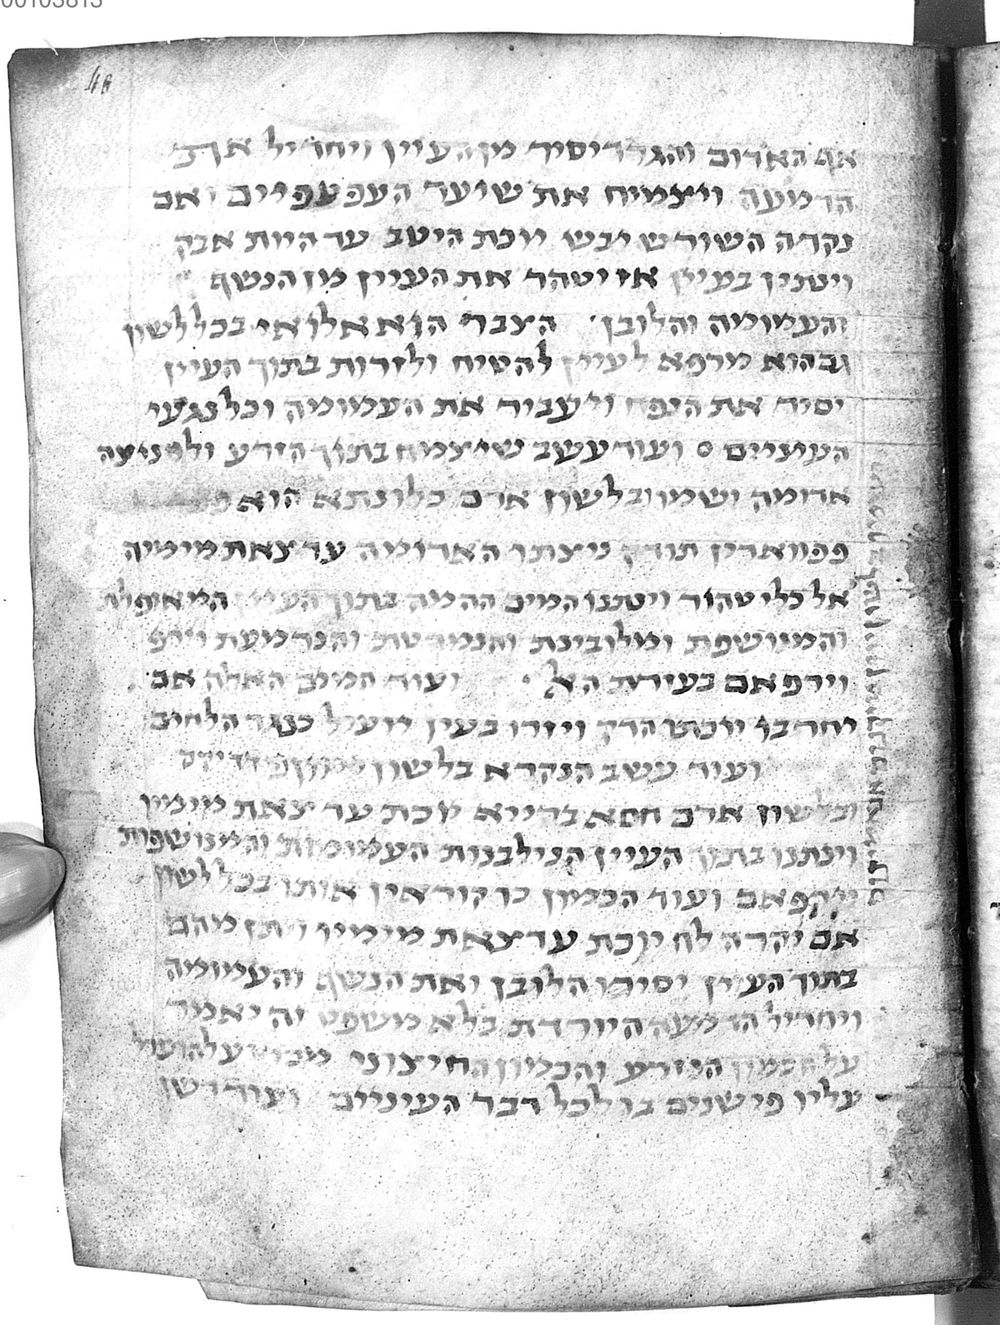 48
אף האדום והגרר יסיר מן העיין ויחדיל את
הדמעה ויצמיח את שיער העפעפיים ואם
נקרה השורש יבש יוכת היטב עד היות אבק
ויטנין בעיין אז יטהר את העיין מן הנשף
והעמומיה והלובן הצברי הוא אלואי בכל לשון
גם הוא מרפא לעיין להטיח ולזרות בתוך העיין
יסיר את הנפח ויעביר את העמומה וכל נגעי
העיניים ועוד עשב שיצמח בתוך הזרע ולו ניצה
אדומה ושמו ובלשון ארם כלונתא הוא
פפוואריו תודק ניצתו האדומיה עד צאת מימיה
אל כלי טהור ויטננו המים ההמה בתוך העיין המאופלת
והמנושפת ומלובינת והנמרטת והנדמעת
וירפאם בעזרת האל ועוד המלב האלה אם
יחרבו יוכתו הדק ויזרו בעין יועיל כנגד הלחים
ועוד עשב הנקרא בלשון
ובלשון ארם חסא ברייא יוכת עד צאת מימיו
וינתנו בתוך העיין הנילבנות העמומות והמנושפות
וירפאם ועוד הכמון כו קוראין אותו בכל לשון
אם יקרה לח יוכת עד צאת מימיו ויתן מהם
בתוך העיין יסירו הלובן ואת הנשף והעמומה
ויחדיל הדמעה היורדת בלא משפט זה יאמר
על הכמון הנזרע והכמון החיצוני
עליו פי שנים בו לכל דבר העיניים ועוד דשן